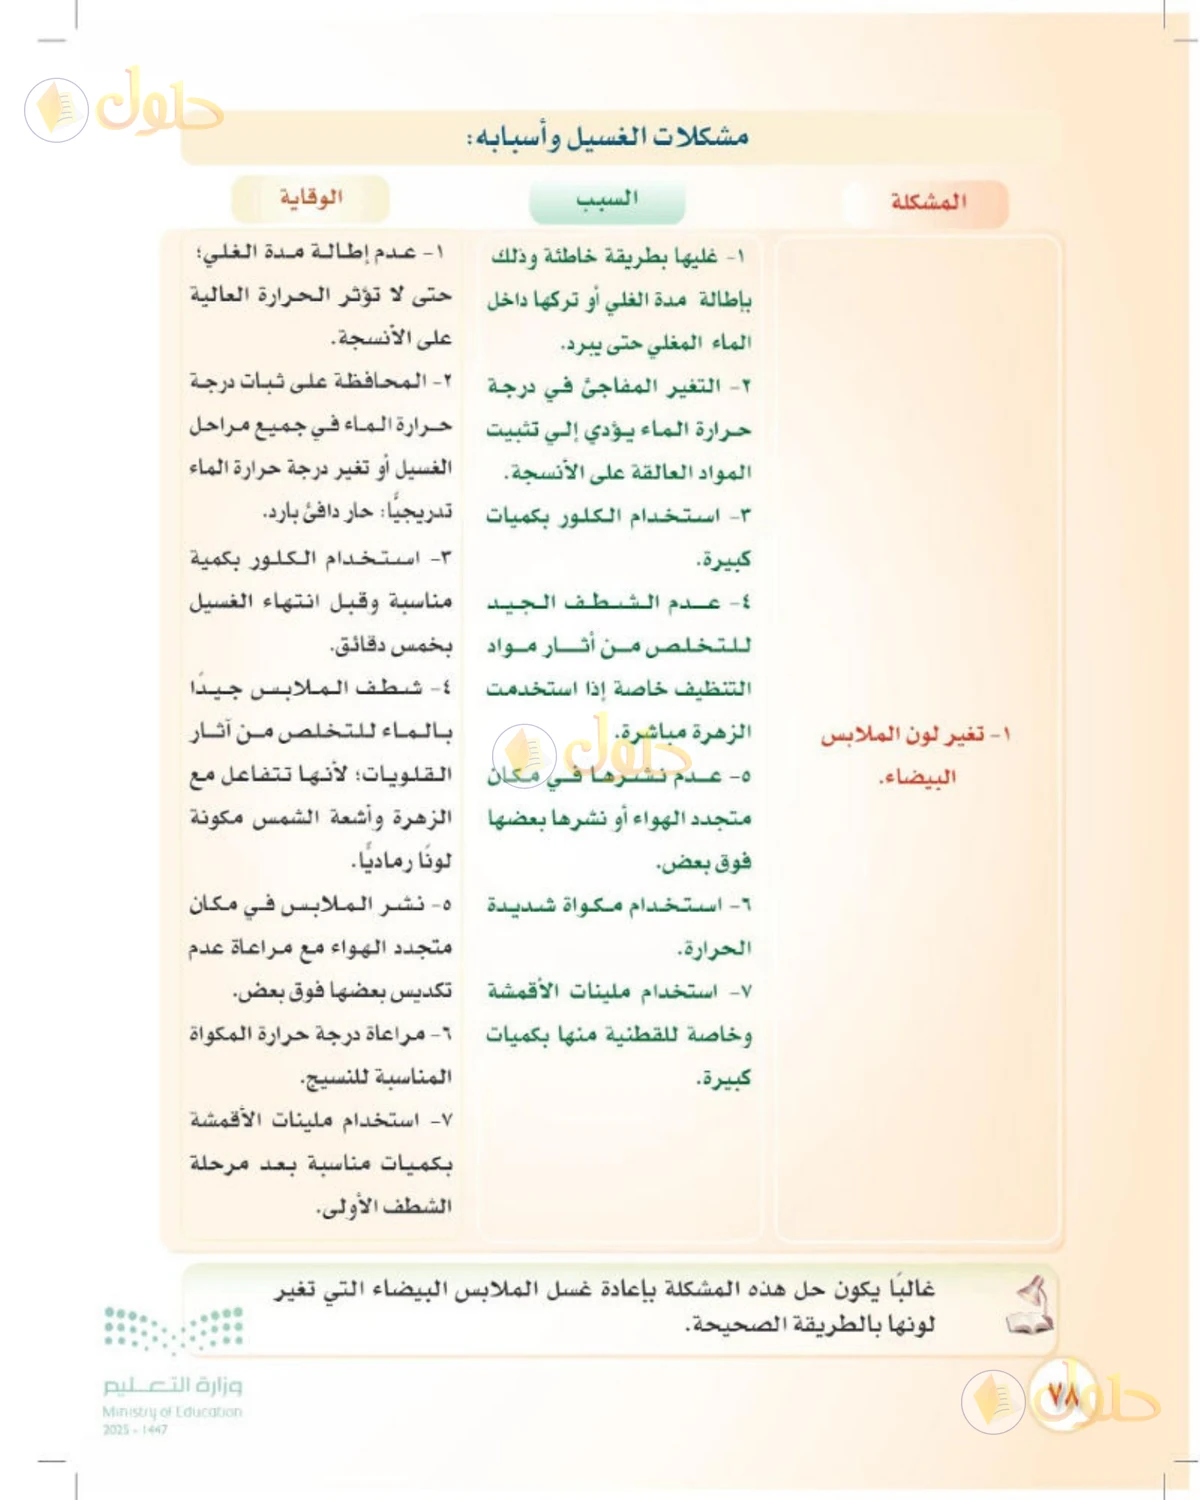 حلول
مشكلات الغسيل وأسبابه:
المشكلة
السبب
الوقاية
١- تغير لون الملابس
البيضاء.
١- غليها بطريقة خاطئة وذلك
بإطالة مدة الغلي أو تركها داخل
الماء المغلي حتى يبرد.
٢- التغير المفاجئ في درجة
حرارة الماء يؤدي إلي تثبيت
المواد العالقة على الأنسجة.
٣- استخدام الكلور بكميات
كبيرة.
٤- عدم الشطف الجيد
للتخلص من أثار مواد
التنظيف خاصة إذا استخدمت
الزهرة مباشرة.
٥- عدم نشرها في مكان
متجدد الهواء أو نشرها بعضها
فوق بعض.
٦- استخدام مكواة شديدة
الحرارة.
٧- استخدام ملينات الأقمشة
وخاصة للقطنية منها بكميات
كبيرة.
١- عدم إطالة مدة الغلي؛
حتى لا تؤثر الحرارة العالية
على الأنسجة.
٢- المحافظة على ثبات درجة
حرارة الماء في جميع مراحل
الغسيل أو تغير درجة حرارة الماء
تدريجيًّا: حار دافئ بارد.
٣- استخدام الكلور بكمية
مناسبة وقبل انتهاء الغسيل
بخمس دقائق.
٤- شطف الملابس جيدًا
بالماء للتخلص من آثار
القلويات؛ لأنها تتفاعل مع
الزهرة وأشعة الشمس مكونة
لونًا رماديًّا.
٥- نشر الملابس في مكان
متجدد الهواء مع مراعاة عدم
تكديس بعضها فوق بعض.
٦- مراعاة درجة حرارة المكواة
المناسبة للنسيج.
٧- استخدام ملينات الأقمشة
بكميات مناسبة بعد مرحلة
الشطف الأولى.
حلول
غالبًا يكون حل هذه المشكلة بإعادة غسل الملابس البيضاء التي تغير
لونها بالطريقة الصحيحة.
وزارة التعليم
Ministry of Education
2025 - 1447
٧٨
حلول